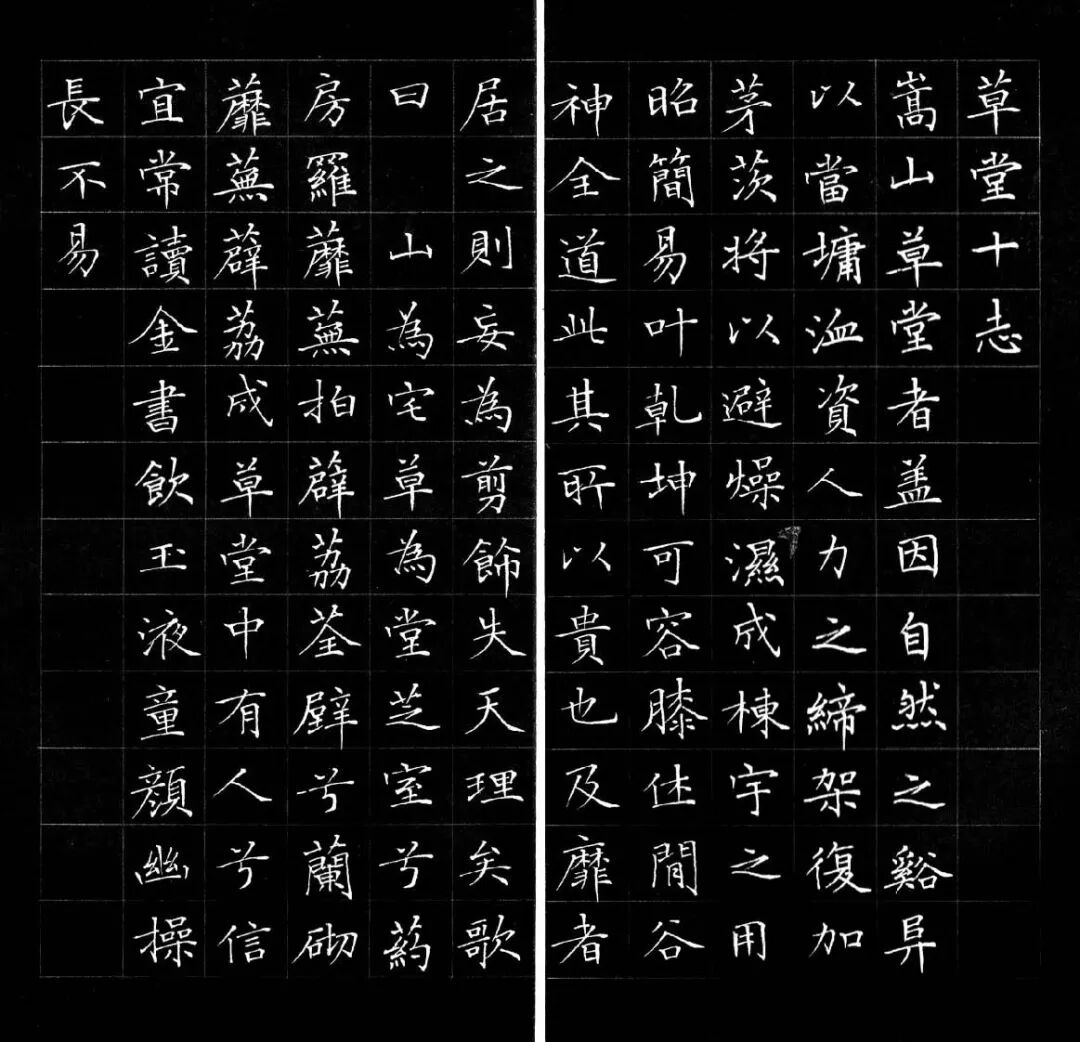 草堂十志
嵩山草堂者盖因自然之谿阜
以當墉洫資人力之締架復加
茅茨将以避燥濕成棟宇之用
昭簡易叶乹坤可容膝休閒谷
神全道此其所以貴也及靡者
居之則妄為剪餙失天理矣歌
曰 山為宅草為堂芝室兮葯
房羅蘼蕪拍薜荔荃壁兮蘭砌
蘼蕪薜荔成草堂中有人兮信
宜常讀金書飲玉液童顔幽操
長不易